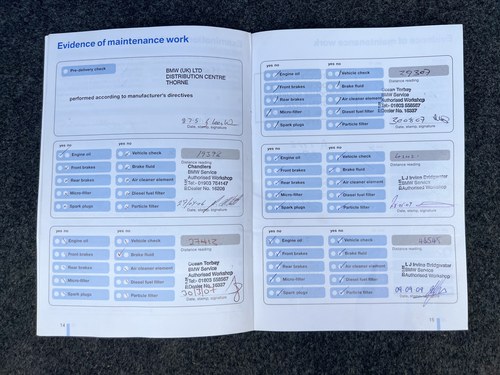 Evidence of maintenance work
Pre-delivery check
BMW (UK) LTD
DISTRIBUTION CENTRE
THORNE
performed according to manufacturer's directives
Date, stamp, signature
yes no yes no
Engine oil Vehicle check
Front brakes Brake fluid
Rear brakes Air cleaner element
Micro-filter Diesel fuel filter
Spark plugs Particle filter
Distance reading
Chandlers
BMW Service
Authorised Workshop
Date, stamp, signature
yes no yes no
Engine oil Vehicle check
Front brakes Brake fluid
Rear brakes Air cleaner element
Micro-filter Diesel fuel filter
Spark plugs Particle filter
27412
Distance reading
Ocean Torbay
BMW Service
Authorised Workshop
Date, stamp, signature
14
yes no yes no
Engine oil Vehicle check
Front brakes Brake fluid
Rear brakes Air cleaner element
Micro-filter Diesel fuel filter
Spark plugs Particle filter
Distance reading
Ocean Torbay
BMW Service
Authorised Workshop
Date, stamp, signature
yes no yes no
Engine oil Vehicle check
Front brakes Brake fluid
Rear brakes Air cleaner element
Micro-filter Diesel fuel filter
Spark plugs Particle filter
Distance reading
BMW Service
Authorised Workshop
Date, stamp, signature
yes no yes no
Engine oil Vehicle check
Front brakes Brake fluid
Rear brakes Air cleaner element
Micro-filter Diesel fuel filter
Spark plugs Particle filter
Distance reading
BMW Service
Authorised Workshop
09 09 09
Date, stamp, signature
15